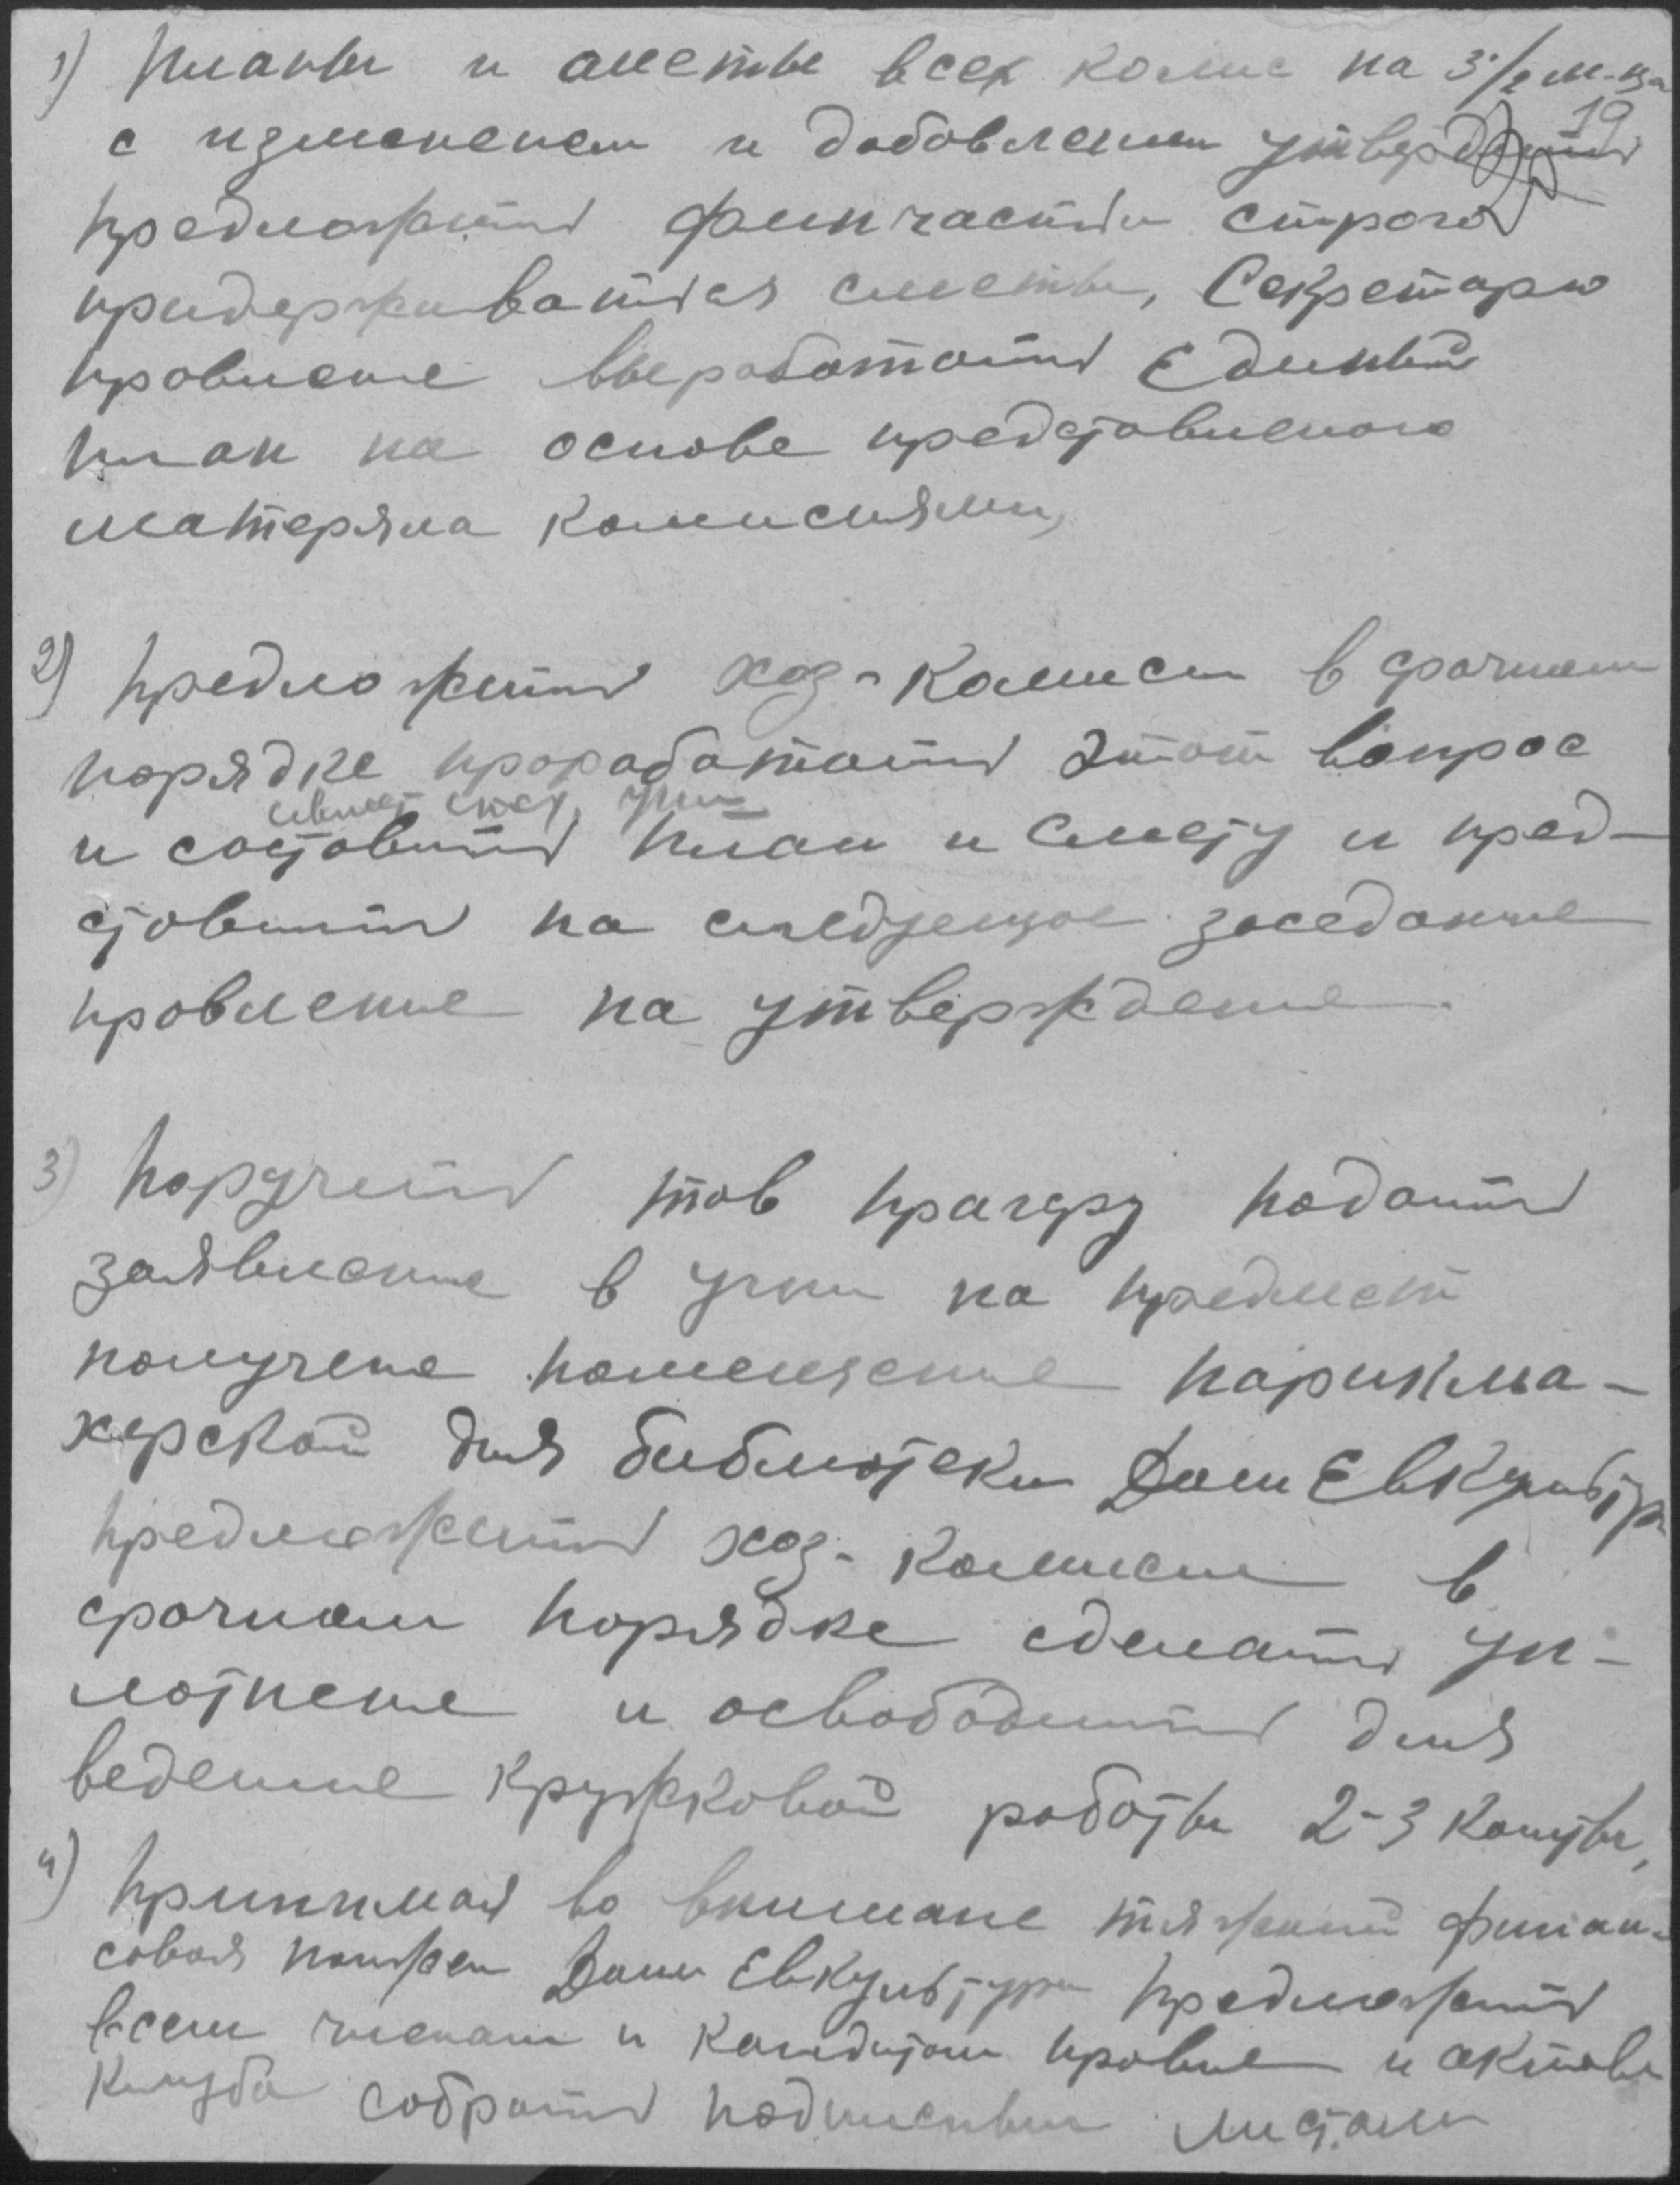 1) Планы и сметы всех комис на 3 1/2 м-ца
19
с изменением и добовлением утвердить
предложить финчасти строго
придерживатся сметы, Секретарю
провление выработать Единый
план на основе представленого
матеряла комисиями,
2) предложить хоз-комиси в срочном
порядке проработать этот вопрос
и составить план и смету и пред-
ставить на следующое заседание
провление на утверждение.
3) поручить тов прагеру подать
заявление в на предмет
получене помещение парикма-
херской для библиотеки Дом Евкультур
предложить хоз-комисии в
срочном порядке сделать уп-
лотнение и освободить для
ведение кружковой работы 2-3 комнты,
4) принимая во внимане тяжолий финан-
совая полжен Дом Евкультуры предложить
всем членам и кандитам провле и актовы
Клуба собрать подписным листам